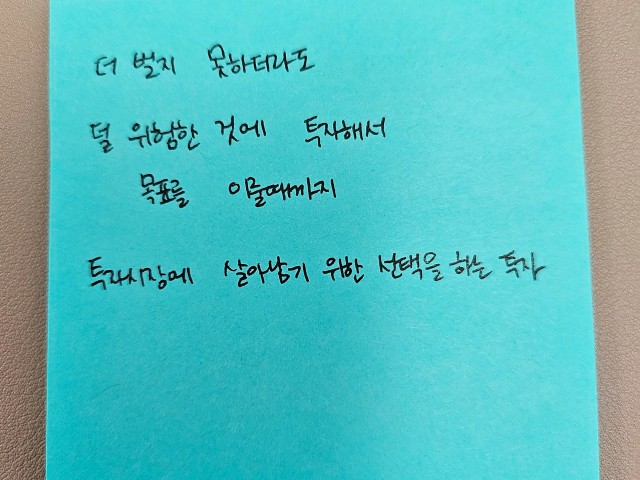 더 벌지 못하더라도
덜 위험한 것에 투자해서
목표를 이룰때까지
투자시장에 살아남기 위한 선택을 하는 투자